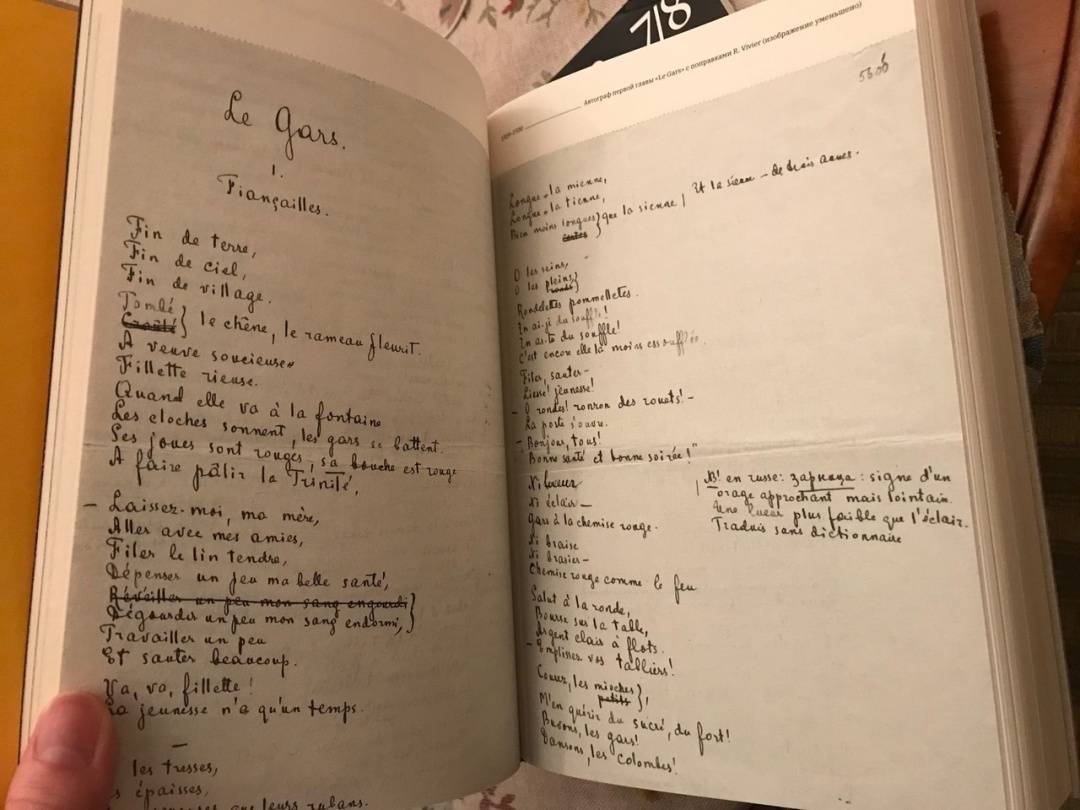 Le Gars.
1.
Fiançailles.
Fin de terre,
Fin de ciel,
Fin de village.
Tombé
Croulé } le chêne, le rameau fleurit.
A veuve soucieuse
Fillette rieuse.
Quand elle va à la fontaine
Les cloches sonnent, les gars se battent.
Ses joues sont rouges, sa bouche est rouge
A faire pâlir la Trinité,
– Laissez-moi, ma mère,
Aller avec mes amies,
Filer le lin tendre,
Dépenser un peu ma belle santé,
Réveiller un peu mon sang engourdi
Dégourdir un peu mon sang endormi, }
Travailler un peu
Et sauter beaucoup.
Va, va, fillette!
La jeunesse n'a qu'un temps.
–
les tresses,
épaisses,
que leurs rubans.
7/8
1929–1930 Автограф первой главы «Le Gars» с поправками R. Vivier (изображение уменьшено)
Longue – la mienne,
Longue – la tienne,
Bien moins longues } que la sienne | Et la sienne – de trois aunes.
O les seins,
O les pleins }
Rondelettes pommelettes.
En ai-je du souffle!
En as-tu du souffle!
C'est encore elle la moins essoufflée.
Filer, sauter –
Liesse! jeunesse!
– O rondes! ronron des rouets! –
La porte s'ouvre.
– Bonjour, tous!
Bonne santé et bonne soirée!"
Ni lueur
Ni éclair –
Gars à la chemise rouge.
Ni braise
Ni brasier –
Chemise rouge comme le feu
| NB! en russe: зарница: signe d'un
orage approchant mais lointain.
Une lueur plus faible que l'éclair.
Traduis sans dictionnaire
Salut à la ronde,
Bourse sur la table,
Argent clair à flots.
– Emplissez vos talliers!
Courez, les mioches
petits },
M'en quérir du sucré, du fort!
Buvons, les gars!
Dansons, les colombes!